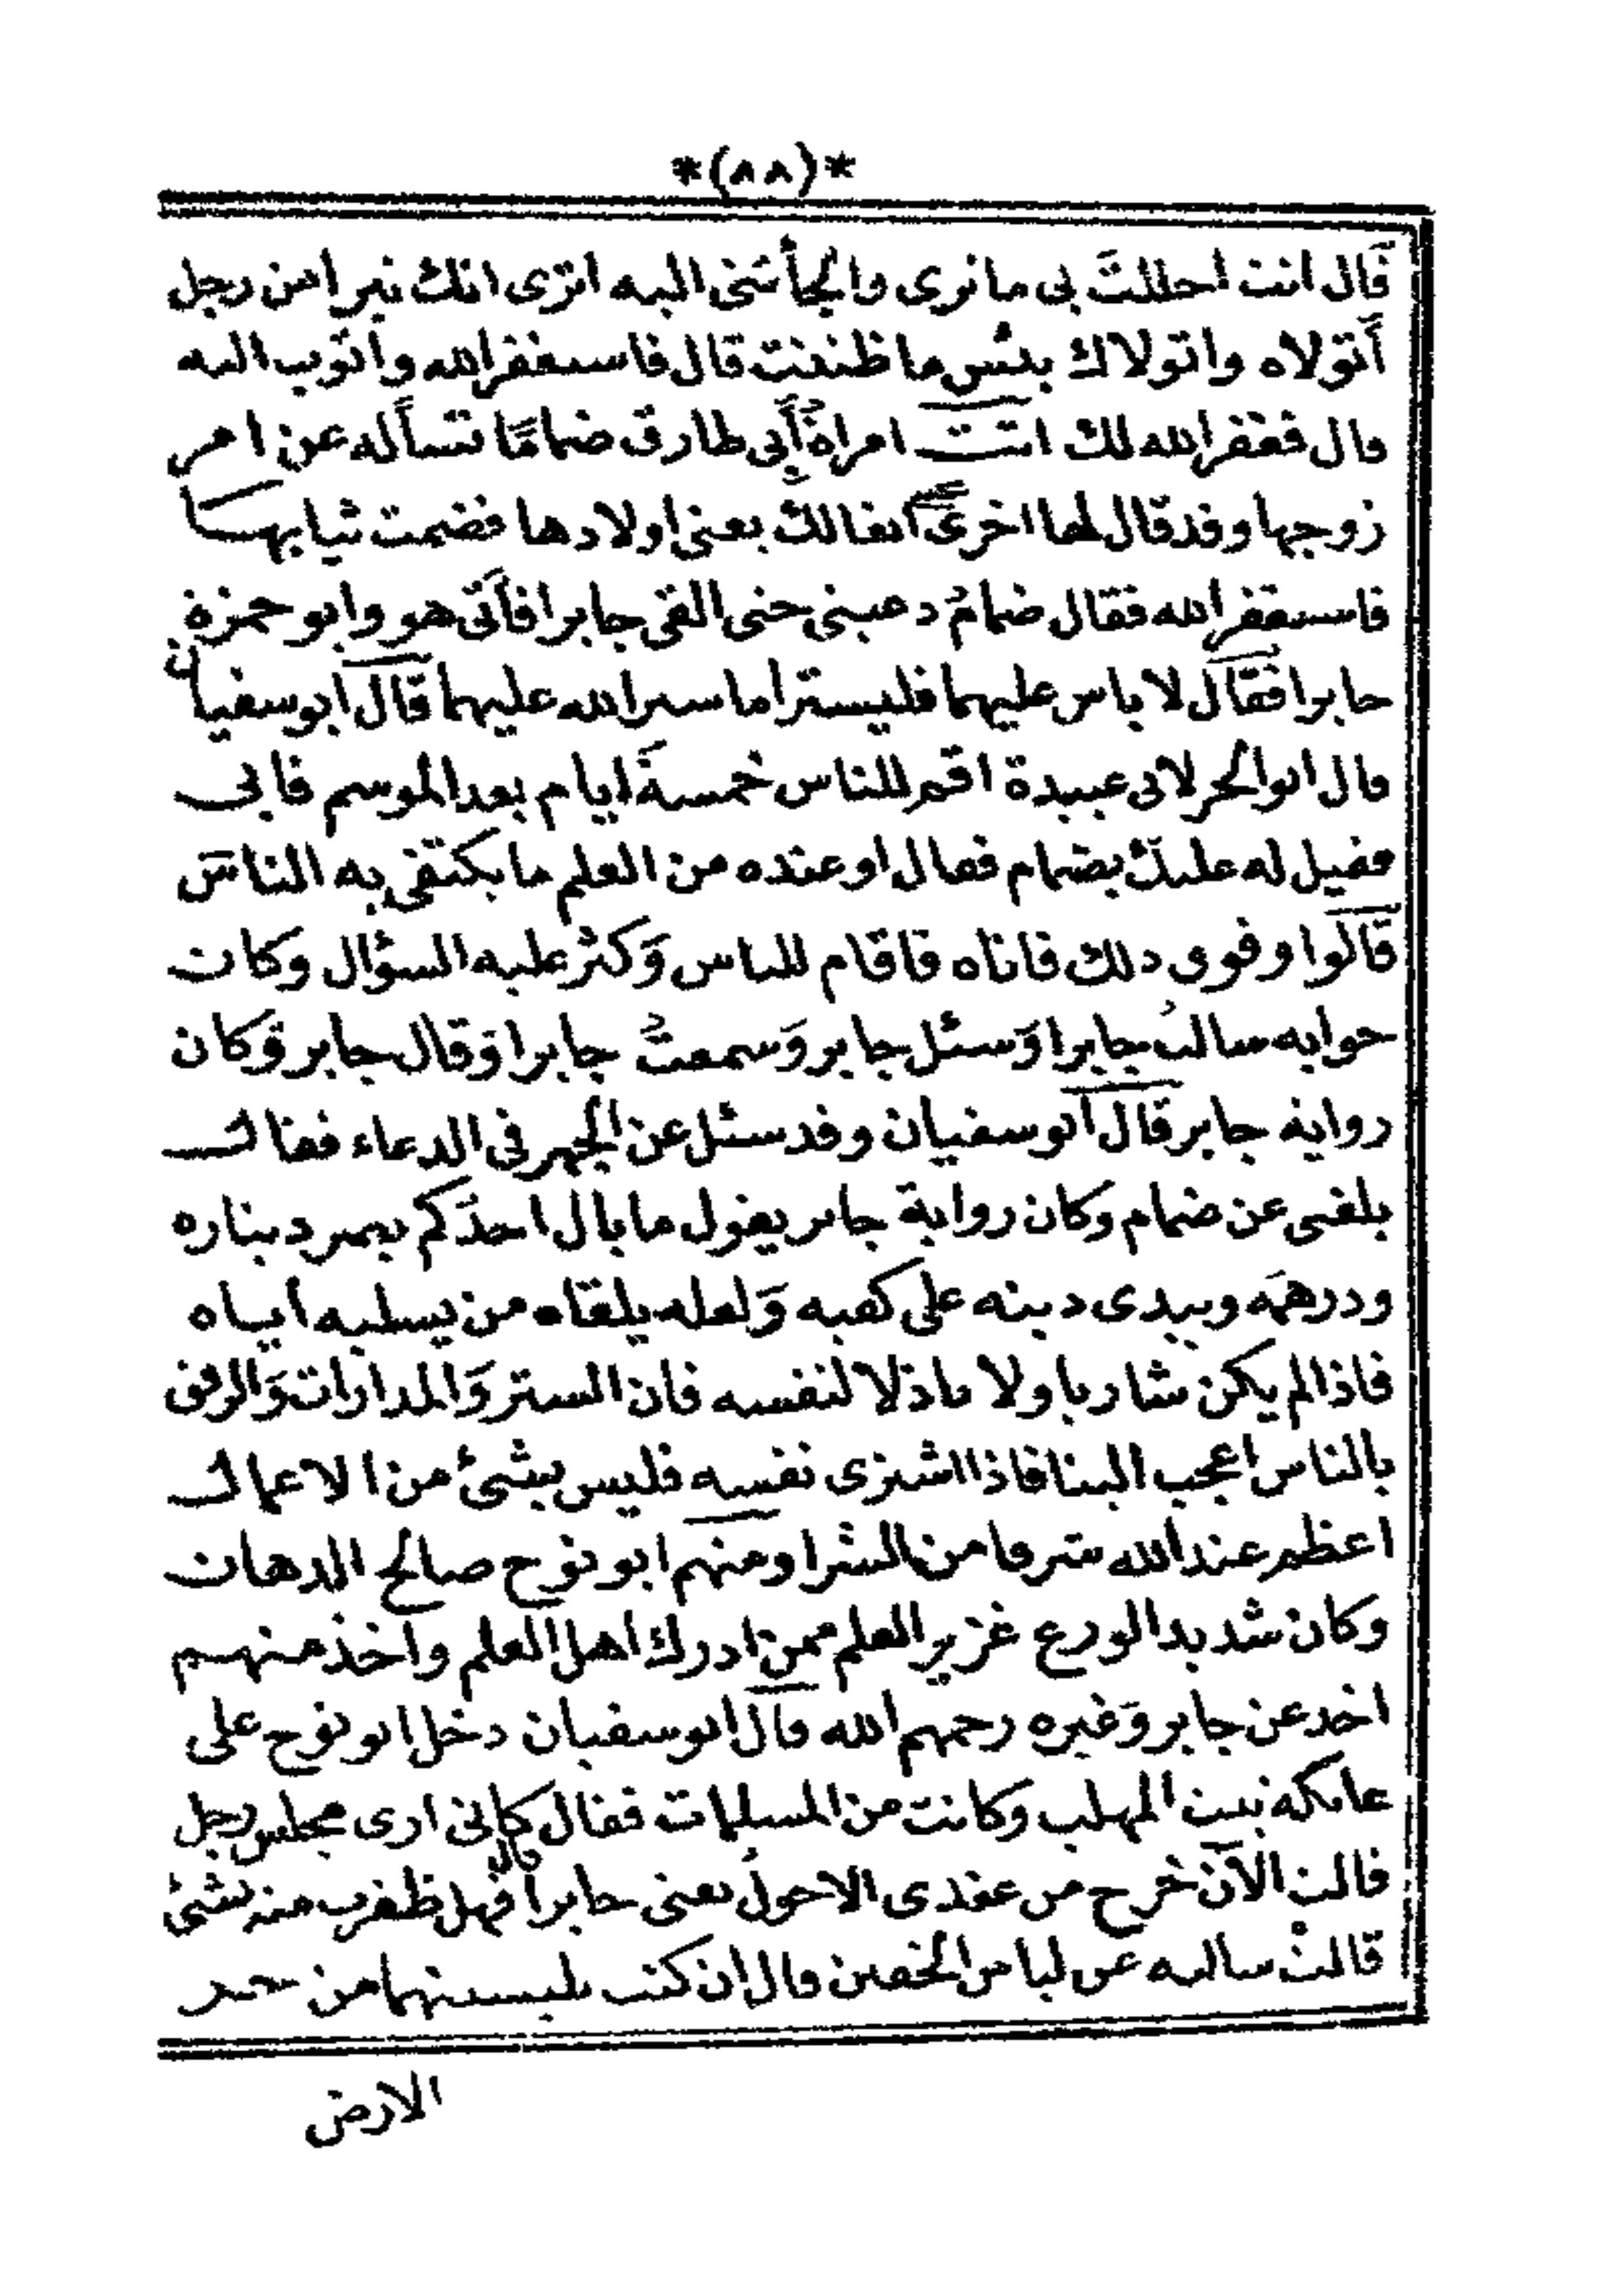 *(٨٨)*
قال انت احللتَ بى ما نرى والجأتنى اليه اترى انك تبرا من رجل
أتولاه واتولاك بئس ما ظننت قال فاستغفر الله واتوب اليه
قال فغفر الله لك اتت امراة أبى طارق ضمامًا تسأله عن امر
زوجها وقد قال لها اخرى انفالك يعنى اولادها فضمت ثيابها
فاستغفر الله فقال ضمامُ دعينى حتى القى جابرا فأتى هو وابو حمزة
جابرا فقال لا باس عليهما فليسترا ما ستر الله عليهما قال ابو سفيان
قال ابو الحر لابى عبيدة اقم للناس خمسةَ ايام بعد الموسم فابى
فقيل له عليك بضمام فقال او عنده من العلم ما يكتفى به الناس
قالوا وفوق ذلك فاتاه فاقام للناس وَكثر عليه السؤال وكان
جوابه سالتُ جابرا وَسئل جابر وَسمعتُ جابرا وَقال جابر وَكان
رواية جابر قال ابو سفيان وقد سئل عن الجهر فى الدعاء فقال
بلغنى عن ضمام وكان رواية جابر يقول ما بال احدكم يصر ديناره
ودرهمَه ويبدى دينه على كعبه وَلعله يلقاه من يسلبه اياه
فاذا لم يكن شاريا ولا باذلا لنفسه فان الستر وَالمدارات وَالرفق
بالناس اعجب الينا فاذا اشترى نفسه فليس بشئ من الاعمال
اعظم عند الله شرفا من الشرا ومنهم ابو نوح صالح الدهان
وكان شديد الورع غزير العلم ممن ادرك اهل العلم واخذ منهم
اخذ عن جابر وَغيره رحمهم الله قال ابو سفيان دخل ابو نوح على
عاتكه بنت المهلب وكانت من المسلمات فقال كانى ارى مجلس رجل
قالت الآن خرج من عندى الاحول يعنى جابرا قال فهل ظفرت منه بشئ
قالتْ سالته عن لباس الخفين قال ان كنت تلبسينهما من حر
الارض